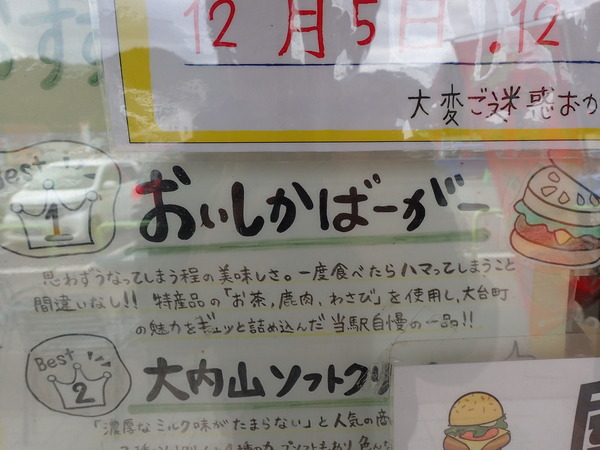 おすす
12月5日.12
大変ご迷惑おか
Best
1
おぃしかばーがー
思わずうなってしまう程の美味しさ。一度食べたらハマってしまうこと
間違いなし!! 特産品の「お茶,鹿肉,わさび」を使用し,大台町
の魅力をギュッと詰め込んだ当駅自慢の一品!!
Best
2
大内山ソフトクリ
「濃厚なミルク味がたまらない」と人気の商